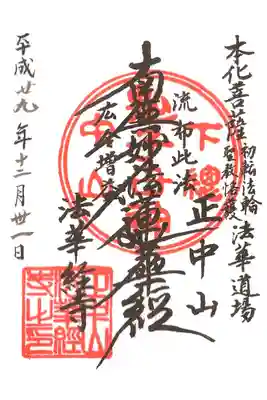 本化菩薩初転法輪
啓教悟發法華道場
正中山
流布此法
南無妙法蓮華経
広令増益
法華経寺
平成廿九年十二月廿一日
下總